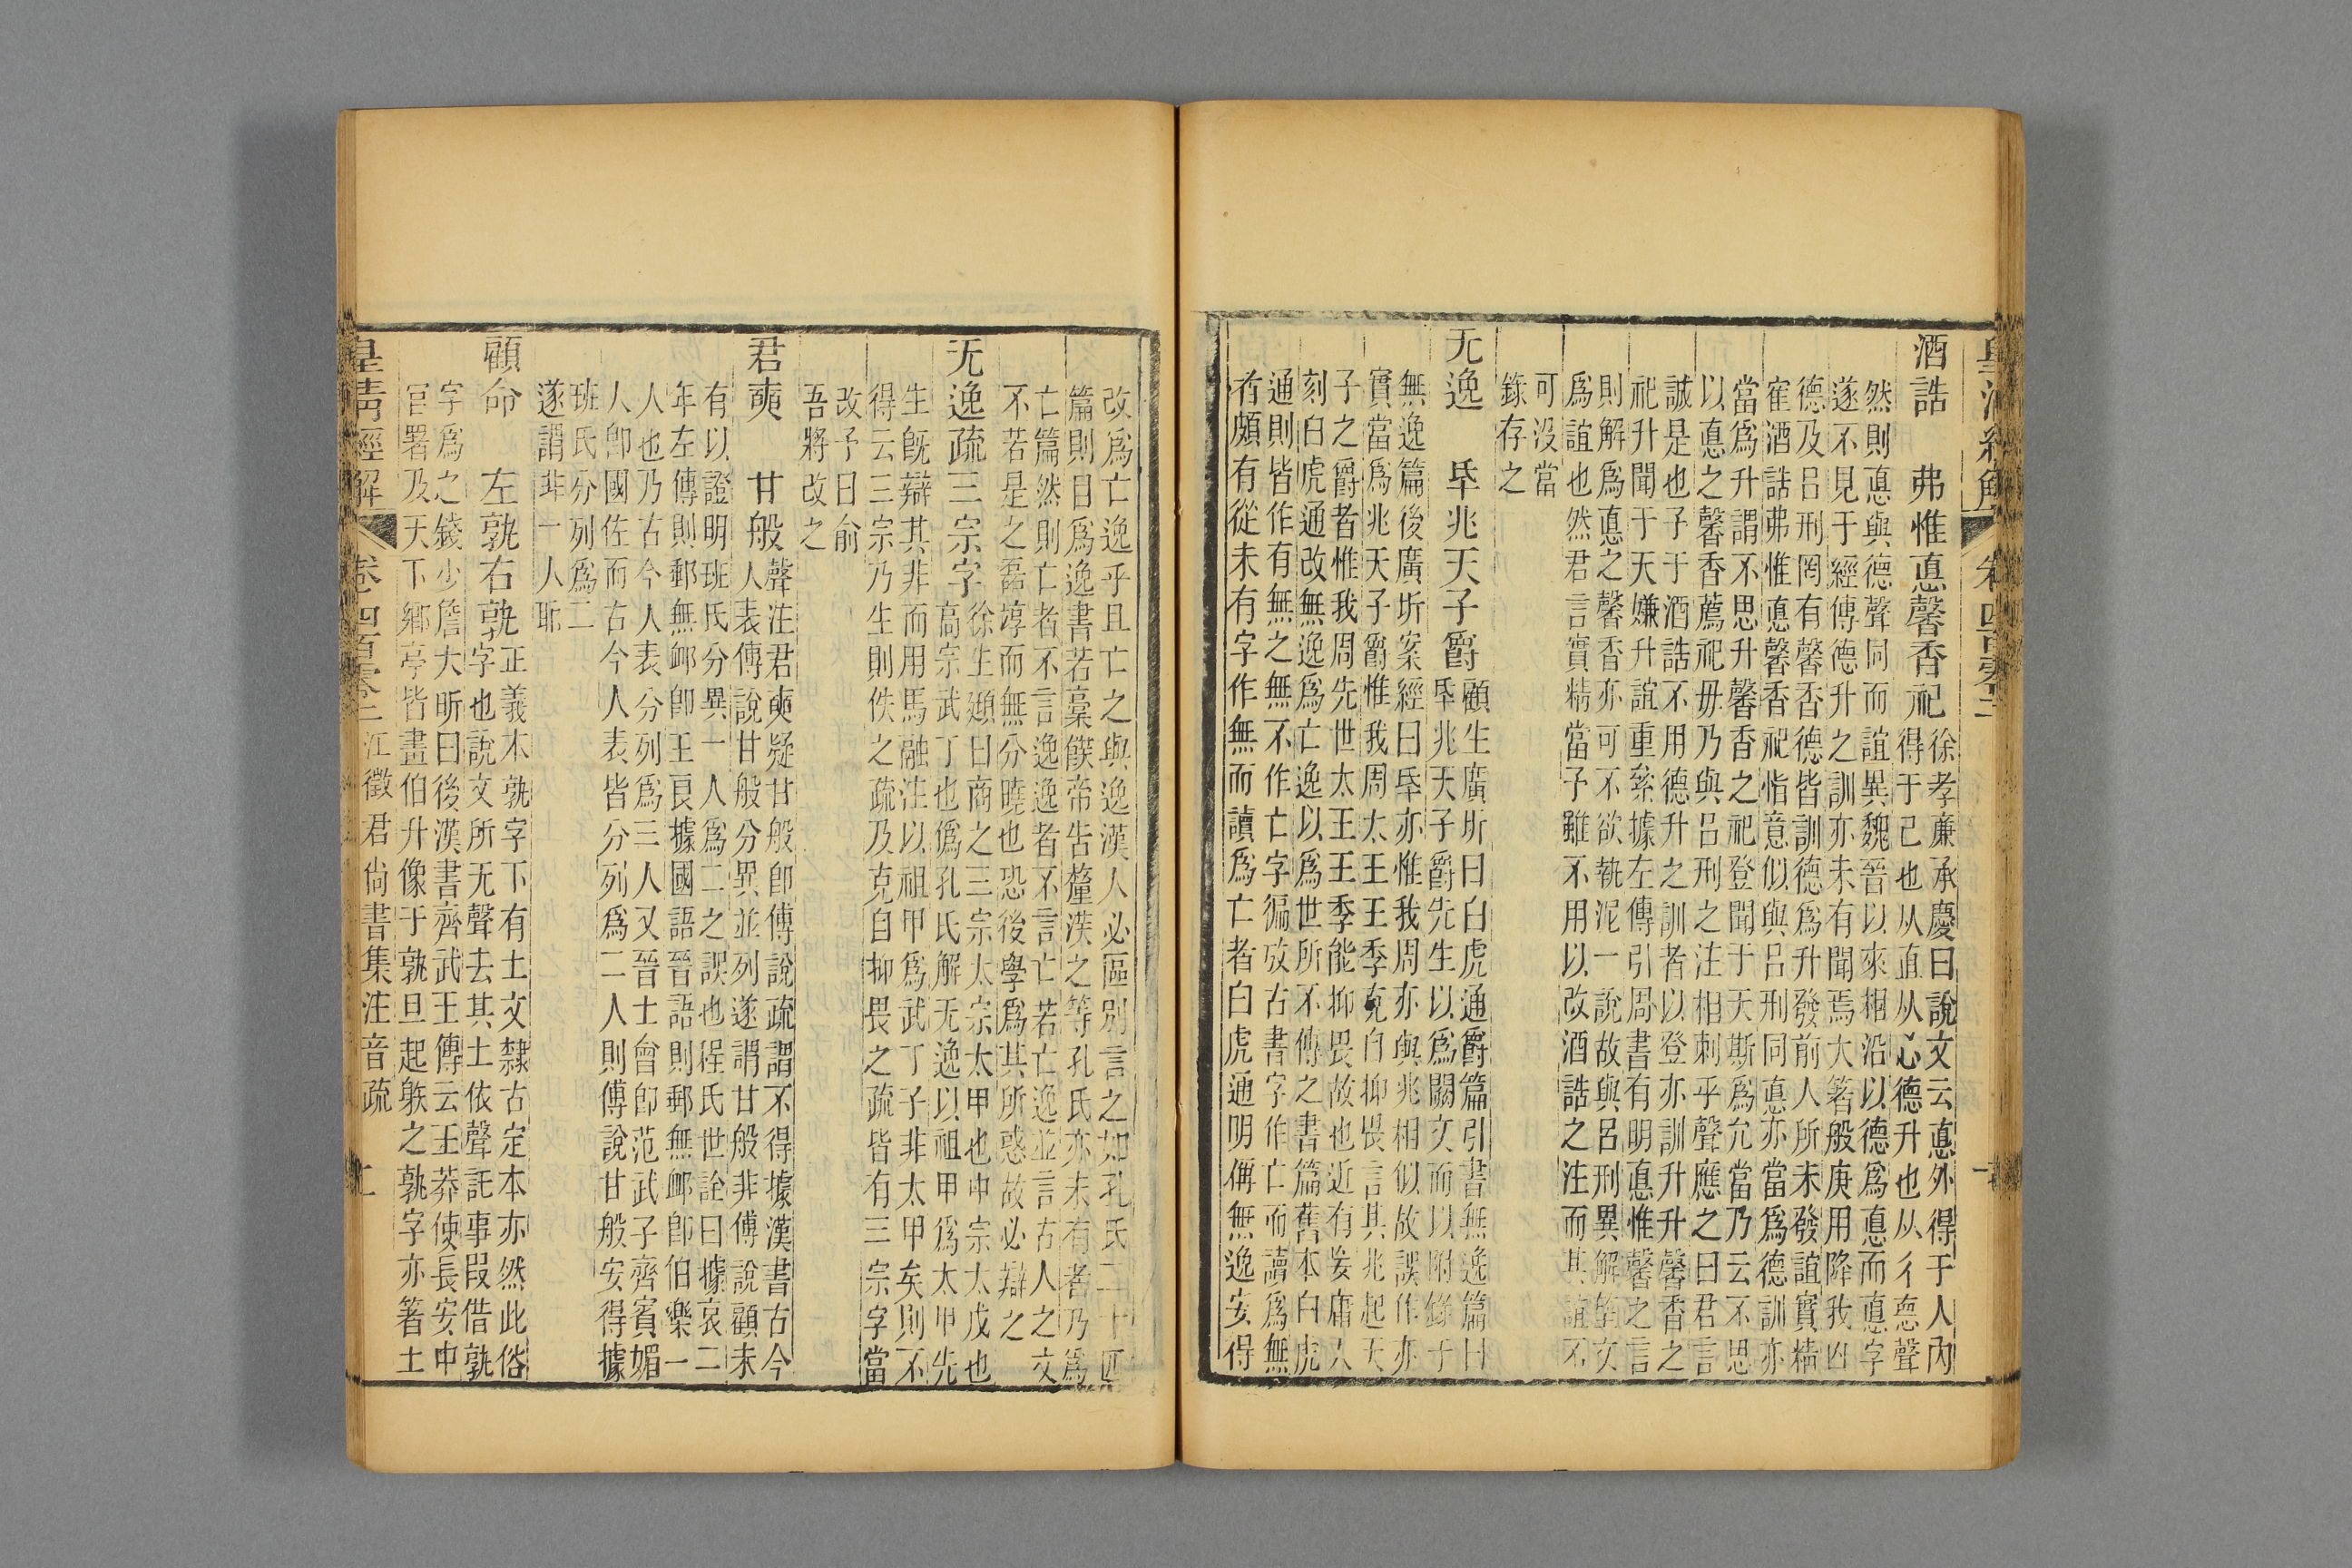 皇清經解 卷四百零二
酒誥 弗惟悳馨香祀徐孝廉承慶曰說文云悳外得于人內
得于己也从直从心德升也从彳悳聲
然則悳與德聲同而誼異魏晉以來相沿以德爲悳而悳字
遂不見于經傳德升之訓亦未有聞焉大箸般庚用降我凶
德及呂刑罔有馨香德皆訓德爲升發前人所未發誼實精
寉酒誥弗惟悳馨香祀恉意似與呂刑同悳亦當爲德訓亦
當爲升謂不思升馨香之祀登聞于天斯爲允當乃云不思
以悳之馨香薦祀毋乃與呂刑之注相刺乎聲應之曰君言
誠是也予于酒誥不用德升之訓者以登亦訓升升馨香之
祀升聞于天嫌升誼重絫據左傳引周書有明悳惟馨之言
則解爲悳之馨香亦可不欲執泥一說故與呂刑異解望文
爲誼也然君言實精當予雖不用以改酒誥之注而其誼不
可沒當
錄存之
无逸 氒兆天子爵顧生廣圻曰白虎通爵篇引書無逸篇曰
氒兆天子爵先生以爲闕文而以附錄于
無逸篇後廣圻案經曰氒亦惟我周亦與兆相似故誤作亦
實當爲兆天子爵惟我周太王王季克自抑畏言其兆起天
子之爵者惟我周先世太王王季能抑畏故也近有妄庸人
刻白虎通改無逸爲亡逸以爲世所不傳之書篇舊本白虎
通則皆作有無之無不作亡字徧攷古書字作亡而讀爲無
者頗有從未有字作無而讀爲亡者白虎通明偁無逸安得
改爲亡逸乎且亡之與逸漢人必區別言之如孔氏二十四
篇則目爲逸書若稾飫帝告釐沃之等孔氏亦未有者乃爲
亡篇然則亡者不言逸逸者不言亡若亡逸並言古人之文
不若是之磊淳而無分曉也恐後學爲其所惑故必辯之
无逸疏三宗字徐生頲曰商之三宗太宗太甲也中宗太戊也
高宗武丁也僞孔氏解无逸以祖甲爲太甲先
生旣辯其非而用馬融注以祖甲爲武丁子非太甲矣則不
得云三宗乃生則佚之疏及克自抑畏之疏皆有三宗字當
改予曰俞
吾將改之
君奭 甘般聲注君奭疑甘般卽傅說疏謂不得據漢書古今
人表傅說甘般分異並列遂謂甘般非傅說顧未
有以證明班氏分異一人爲二之誤也程氏世詮曰據哀二
年左傳則郵無卹卽王良據國語晉語則郵無卹卽伯樂一
人也乃古今人表分列爲三人又晉士會卽范武子齊賓媚
人卽國佐而古今人表皆分列爲二人則傅說甘般安得據
班氏分列爲二
遂謂非一人耶
顧命 左孰右孰正義本孰字下有土文隸古定本亦然此俗
字也說文所无聲去其土依聲託事叚借孰
字爲之錢少詹大昕曰後漢書齊武王傳云王莽使長安中
官署及天下鄉亭皆畫伯升像于孰旦起䠶之孰字亦箸土
皇清經解 卷四百零二 江徵君尙書集注音疏